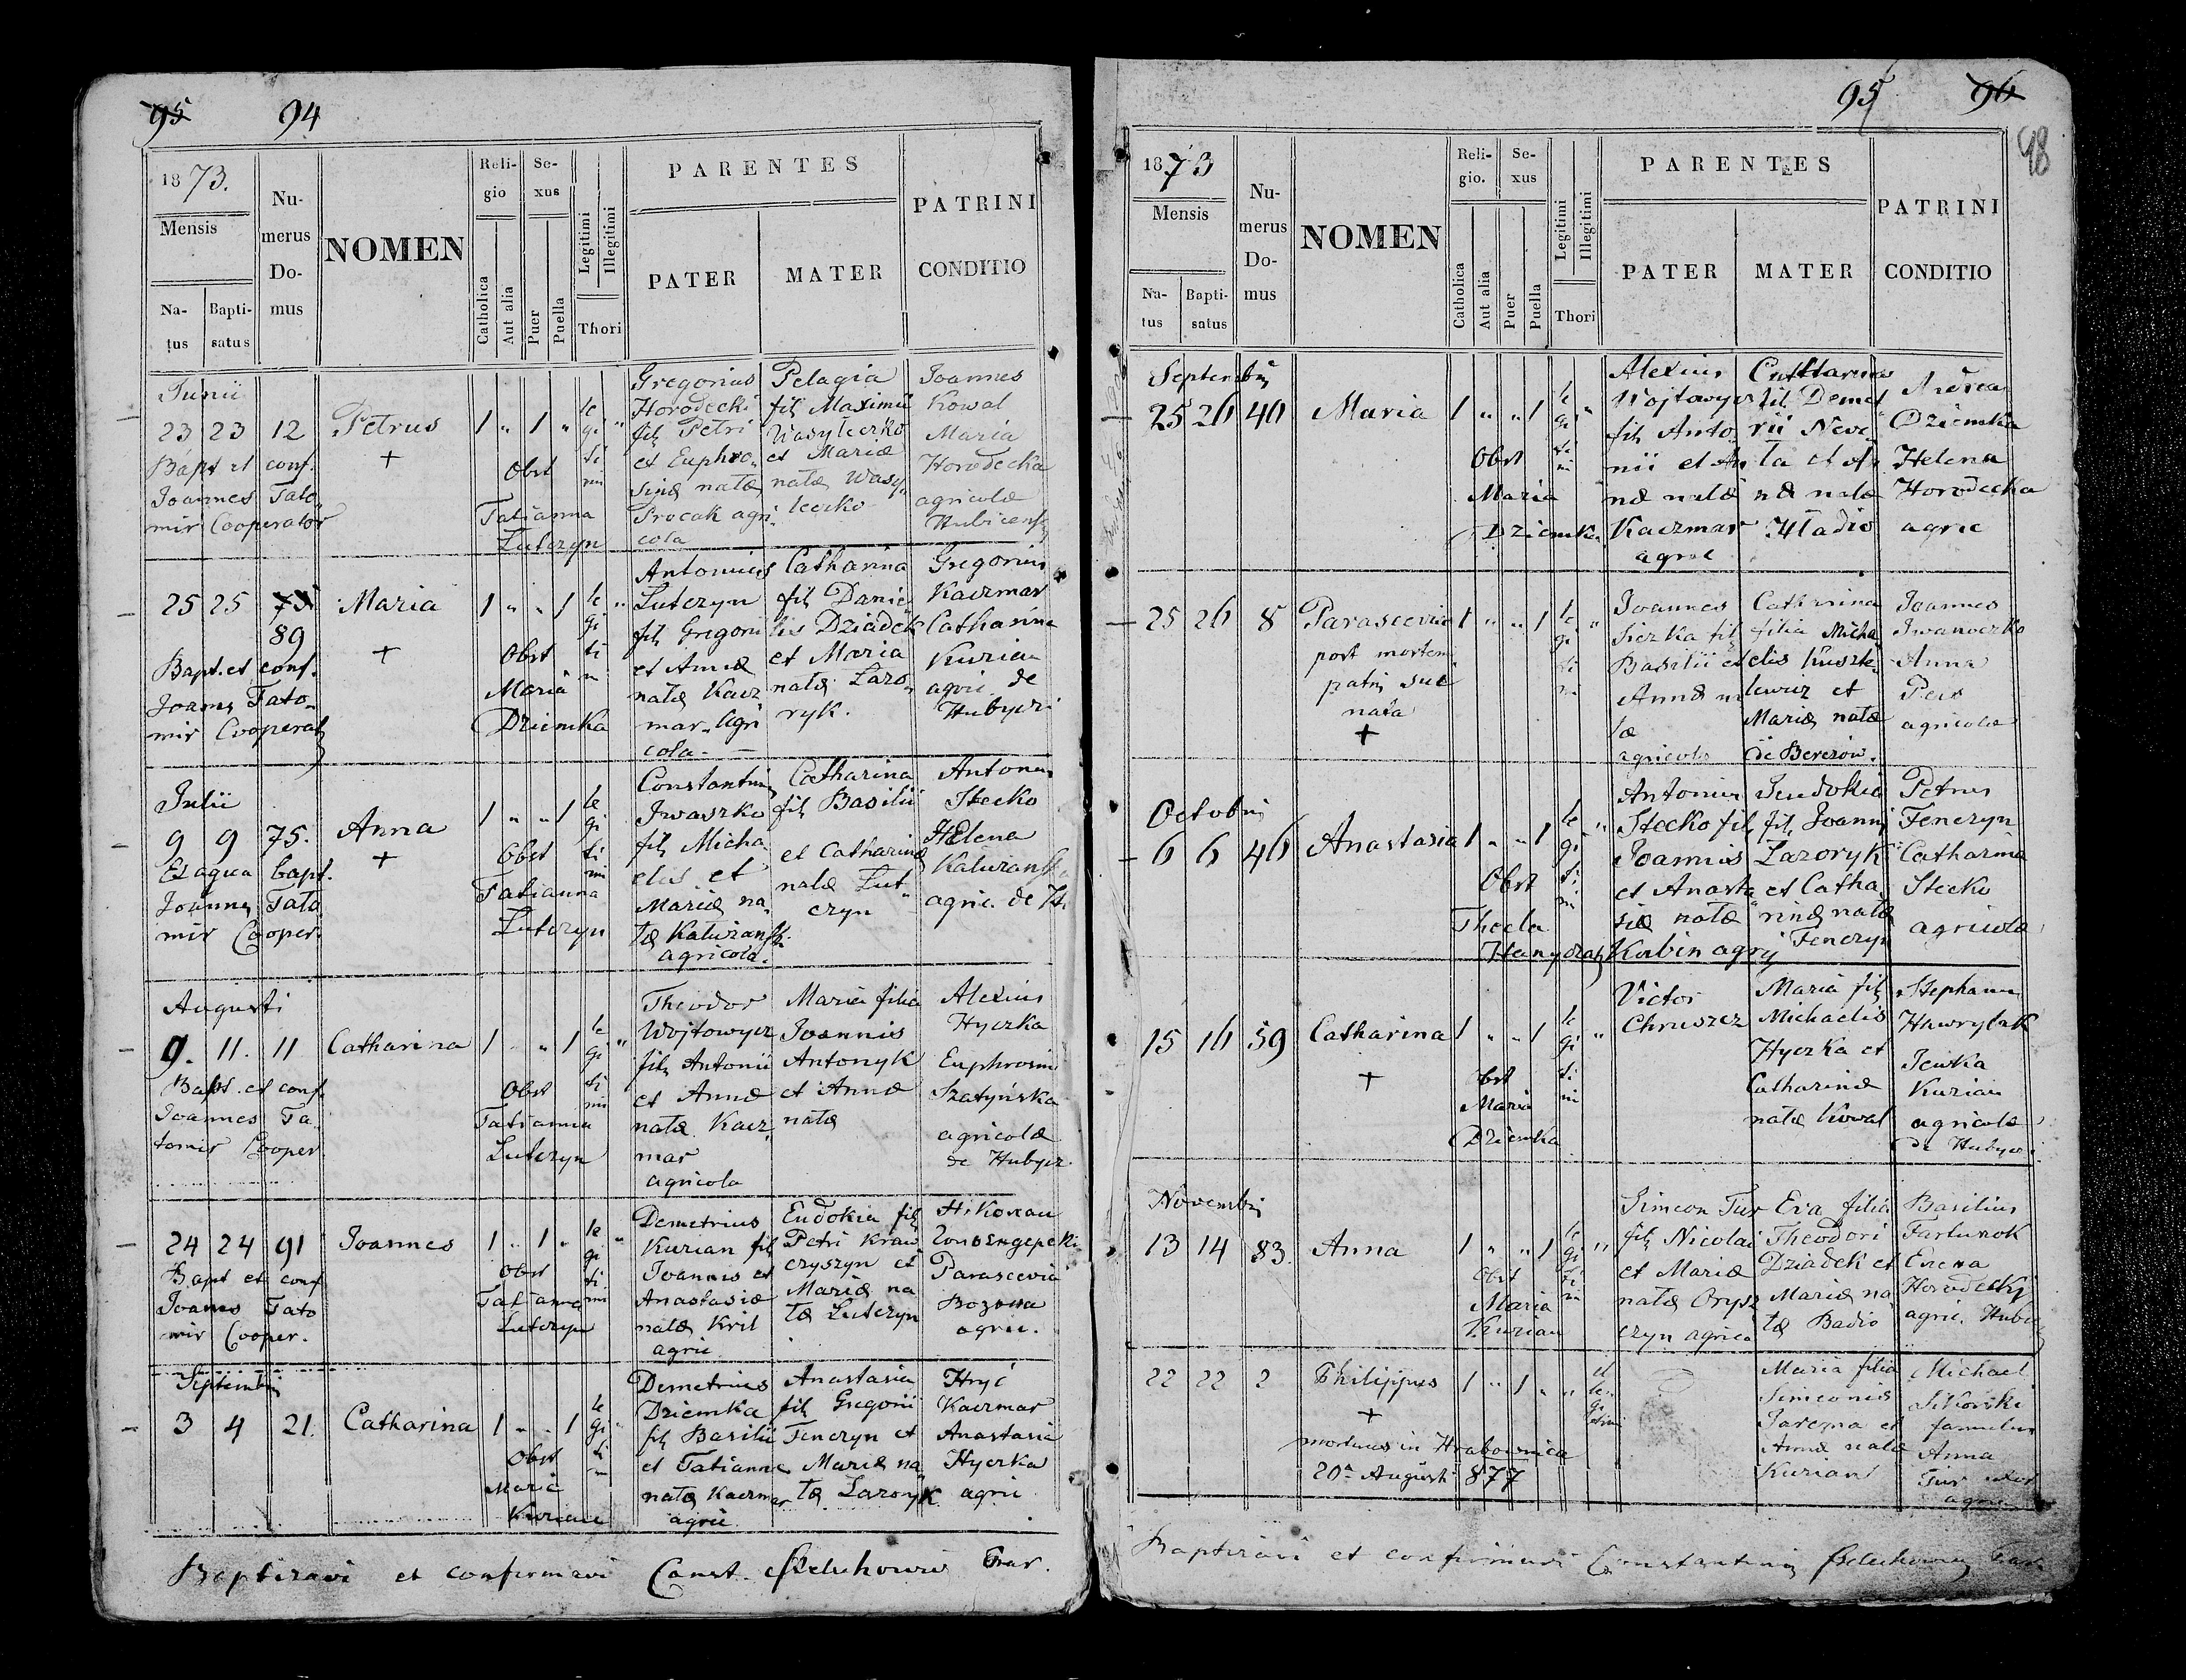 95 94
1873.
Mensis
Na-
tus
Bapti-
satus
Nu-
merus
Do-
mus
NOMEN
Reli-
gio
Catholica
Aut alia
Se-
xus
Puer
Puella
Legitimi
Illegitimi
Thori
PARENTES
PATER
MATER
PATRINI
CONDITIO
Junii
23 23 12
Bapt et conf.
Joannes Tato
mir Cooperator
Petrus
+
1 „ 1 „
le
gi „
ti
mi
Obst
Tatianna
Lutczyn
Gregorius
Horodecki
fil Petri
et Euphro„
sinæ natæ
Procak agri
cola
Pelagia
fil Maximii
Wasyleczko
et Mariæ
natæ Wasy„
leczko
Joannes
Kowal
Maria
Horodecka
agricolæ
25 25 75
89
Bapt. et conf.
Joanes Tato„
mir Cooperat
Maria
+
1 „ „ 1
le „
gi
ti
m
Obst
Maria
Dziemka
Antonius
Lutczyn
fil Gregorii
et Annæ
natæ Kacz
mar „ Agri
cola
Catharina
fil Danie
lis Dziadek
et Maria
natæ Lazo„
ryk.
Gregorius
Kaczmar
Catharina
Kurian
agric. de
Hubycz
Julii
9 9 75.
Ex aqua bapt.
Joannes Tato
mir Cooper.
Anna
+
1 „ „ 1
le
gi
ti
mi
Obst
Tatianna
Lutczyn
Constantin
Iwaszko
fil Micha„
elis et
Mariæ na„
tæ
agricola.
Catharina
fil Basilii
et Catharinæ
natæ Lut„
czyn
Antonius
Stecko
Helena
agric. de H.
Augusti
9. 11. 11
Bapt. et conf
Joannes Ta
tomir Cooper
Catharina
1 „ 1
le
gi „
ti
mi
Obst
Tatianna
Lutczyn
Theodor
Wojtowycz
fil Antonii
et Annæ
natæ Kacz
mar
agricola
Maria filia
Joannis
Antonyk
et Annæ
natæ
Alexius
Hyczka
Euphrosin
Szatyńska
agricolæ
de Hubycz
24 24 91
Bapt et conf
Joanes Tato
mir Cooper.
Joannes
1 „ 1 „
le
gi „
ti
mi
Obst
Tatianna
Lutczyn
Demetrius
Kurian fil
Joannis et
Anastasiæ
natæ Kril
agric
Eudokia fil
Petri Kraw
czyszyn et
Mariæ na
tæ Lutczyn
Parascevia
agric.
Septembris
3 4 21.
Catharina
1 „ „ 1
le
gi „
ti
m
Obst
Maria
Kurian
Demetrius
Dziemka
fil Basilii
et Tatianne
natæ Kaczmar
agric
Anastasia
fil Gregorii
Fenczyn et
Mariæ na
tæ Lazoryk
Hryć
Kaczmar
Anastasia
Hyczka
agric
Baptizavi et confirmavi Const. Par.
95 96
98
1873
Mensis
Na-
tus
Bapti-
satus
Nu-
merus
Do-
mus
NOMEN
Reli-
gio.
Catholica
Aut alia
Se-
xus
Puer
Puella
Legitimi
Illegitimi
Thori
PARENTES
PATER
MATER
PATRINI
CONDITIO
Septembris
25 26 40
Maria
1 „ „ 1
le
gi „
ti
mi
Obst
Maria
Dziemka
Alexius
Wojtowycz
fil Anto
nii et An
næ natæ
Kaczmar
agric
Catharina
fil Demet
rii
ta et An
næ natæ
Hladio
Andreas
Dziemka
Helena
Horodecka
agric
25 26 8
Parascevia
post mortem
patris sui
nata
+
1 „ „ 1
le
gi „
ti
mi
Joannes
Siczka fil
Basilii et
Annæ na
tæ
agricola
Catharina
filia Micha
elis Kuszk„
lewicz et
Mariæ natæ
de Berezow.
Joannes
Iwaneczko
Anna
agricolæ
Octobris
6 6 46
Anastasia
1 „ „ 1
le „
gi
ti
mi
Obst
Thecla
Antonius
Stecko fil
Joannis
et Anasta
siæ natæ
Kubin agri
Eudokia
fil Joannis
Lazoryk
et Catha„
rinæ natæ
Fenczyn
Petrus
Fenczyn
Catharina
Stecko
agricolæ
15 16 59
Catharina
+
1 „ „ 1
le
gi „
ti
mi
Obst
Maria
Dziemka
Victor
Chruszcz
Maria fil
Michaelis
Hyczka et
Catharinæ
natæ Kowal
Stephanus
Hawrylak
Jewka
Kurian
agricolæ
de Hubycz
Novembris
13 14 83.
Anna
1 „ „ 1
le
gi „
ti
m
Obst
Maria
Kurian
Simeon Tur
fil Nicolai
et Mariæ
natæ Orysz
czyn agrico
Eva filia
Theodori
Dziadek et
Mariæ na
tæ Badio
Basilius
Erena
Horodecky
agric. Hubic
22 22 2
Philippus
+
mortuus in Hrabownica
20a Augusti 877
1 „ 1 „ „
il
le„
gi
timi
Maria filia
Simeonis
et
Annæ natæ
Kurian
Michael
Sikorski
famulus
Anna
Tur uxor
agric
Baptizavi et confirmavi Constantinus